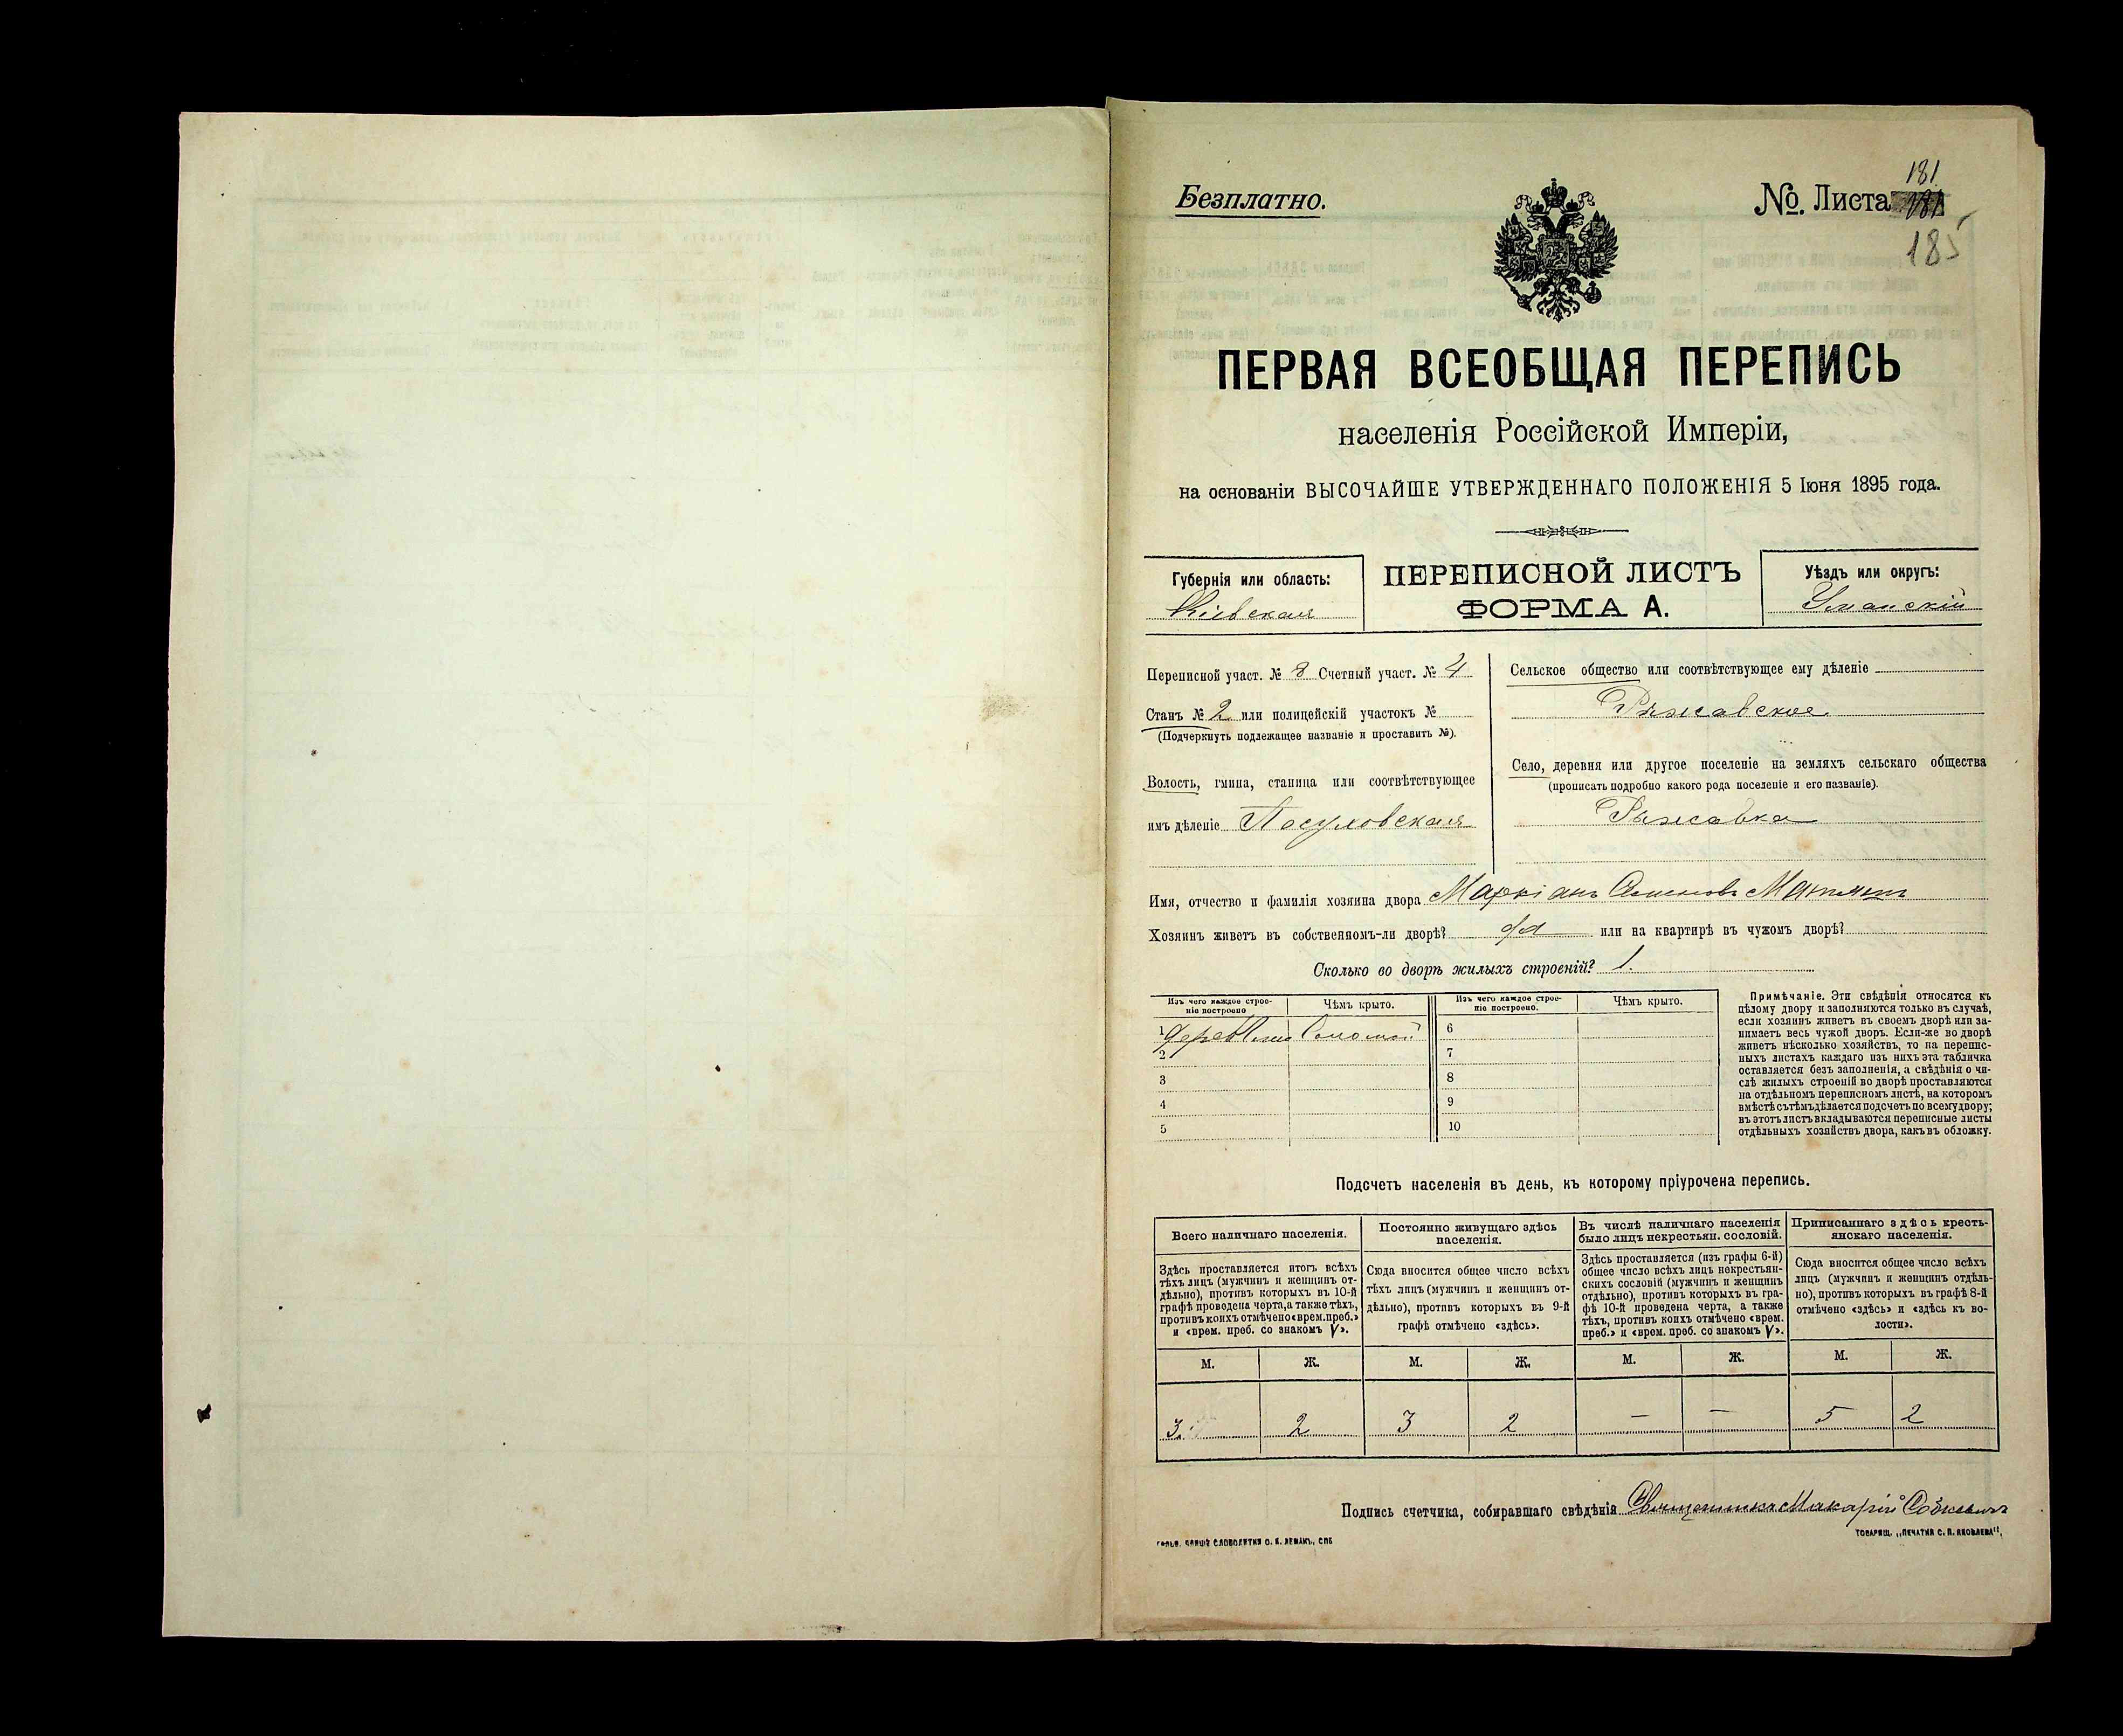 Безплатно.
№. Листа 181
181
185
ПЕРВАЯ ВСЕОБЩАЯ ПЕРЕПИСЬ
населенія Россійской Имперіи,
на основаніи ВЫСОЧАЙШЕ УТВЕРЖДЕННАГО ПОЛОЖЕНІЯ 5 Іюня 1895 года.
Губернія или область:
Кіевская
ПЕРЕПИСНОЙ ЛИСТЪ
ФОРМА А.
Уѣздъ или округъ:
Уманскій
Переписной участ. № 8 Счетный участ. № 4
Станъ № 2 или полицейскій участокъ №
(Подчеркнуть подлежащее названіе и проставить №).
Волость, гмина, станица или соотвѣтствующее
имъ дѣленіе
Сельское общество или соотвѣтствующее ему дѣленіе
Рыжавское
Село, деревня или другое поселеніе на земляхъ сельскаго общества
(прописать подробно какого рода поселеніе и его названіе).
Рыжавка
Имя, отчество и фамилія хозяина двора Маркіанъ Семеновъ
Хозяинъ живетъ въ собственномъ-ли дворѣ? да или на квартирѣ въ чужомъ дворѣ?
Сколько во дворѣ жилыхъ строеній? 1.
Изъ чего каждое строе-
ніе построено
Чѣмъ крыто.
Изъ чего каждое строе-
ніе построено.
Чѣмъ крыто.
1 Соломой
2
3
4
5
6
7
8
9
10
Примѣчаніе. Эти свѣдѣнія относятся къ
цѣлому двору и заполняются только въ случаѣ,
если хозяинъ живетъ въ своемъ дворѣ или за-
нимаетъ весь чужой дворъ. Если-же во дворѣ
живетъ нѣсколько хозяйствъ, то на перепис-
ныхъ листахъ каждаго изъ нихъ эта табличка
оставляется безъ заполненія, а свѣдѣнія о чи-
слѣ жилыхъ строеній во дворѣ проставляются
на отдѣльномъ переписномъ листѣ, на которомъ
вмѣстѣ съ тѣмъ дѣлается подсчетъ по всему двору;
въ этотъ листъ вкладываются переписные листы
отдѣльныхъ хозяйствъ двора, какъ въ обложку.
Подсчетъ населенія въ день, къ которому пріурочена перепись.
Всего наличнаго населенія.
Здѣсь проставляется итогъ всѣхъ
тѣхъ лицъ (мужчинъ и женщинъ от-
дѣльно), противъ которыхъ въ 10-й
графѣ проведена черта, а также тѣхъ,
противъ коихъ отмѣчено «врем. преб.»
и «врем. преб. со знакомъ V».
Постоянно живущаго здѣсь
населенія.
Сюда вносится общее число всѣхъ
тѣхъ лицъ (мужчинъ и женщинъ от-
дѣльно), противъ которыхъ въ 9-й
графѣ отмѣчено «здѣсь».
Въ числѣ наличнаго населенія
было лицъ некрестьян. сословій.
Здѣсь проставляется (изъ графы 6-й)
общее число всѣхъ лицъ некрестьян-
скихъ сословій (мужчинъ и женщинъ
отдѣльно), противъ которыхъ въ гра-
фѣ 10-й проведена черта, а также
тѣхъ, противъ коихъ отмѣчено «врем.
преб.» и «врем. преб. со знакомъ V».
Приписаннаго здѣсь кресть-
янскаго населенія.
Сюда вносится общее число всѣхъ
лицъ (мужчинъ и женщинъ отдѣль-
но), противъ которыхъ въ графѣ 8-й
отмѣчено «здѣсь» и «здѣсь къ во-
лости».
М. Ж. М. Ж. М. Ж. М. Ж.
3 2 3 2 — — 5 2
Подпись счетчика, собиравшаго свѣдѣнія Священникъ Макарій
ТОВАРИЩ. „ПЕЧАТНЯ С. П. ЯКОВЛЕВА“,